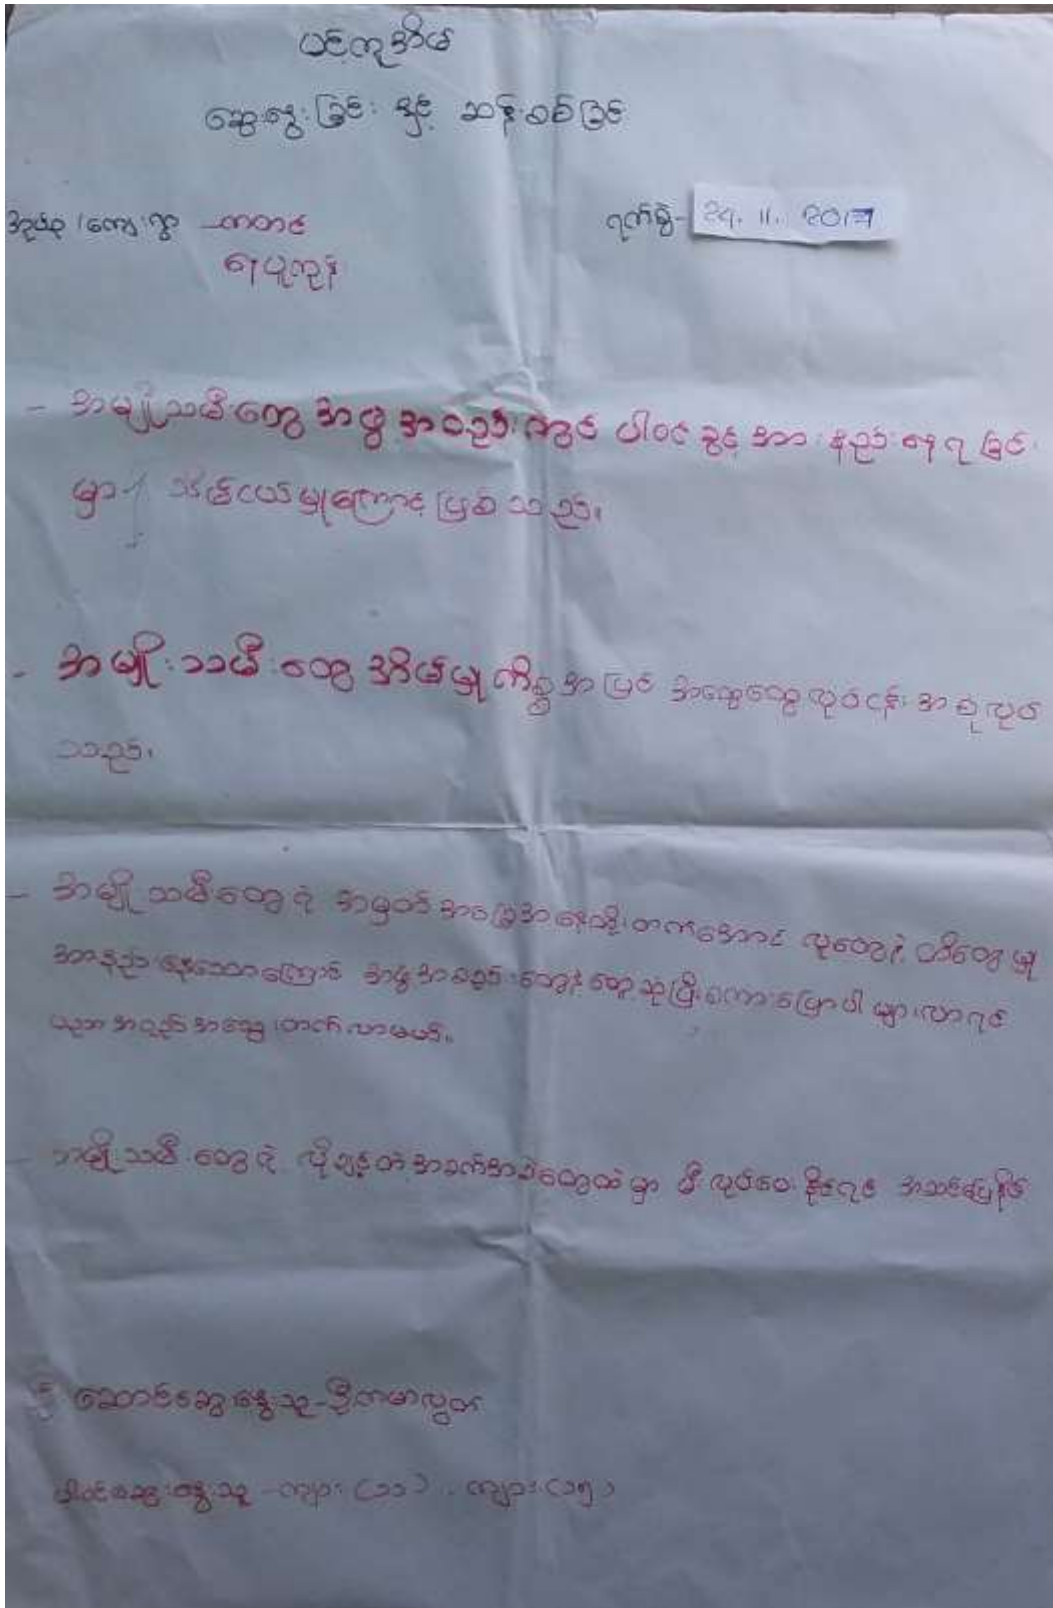 ပင်ကူအိမ်
ဆွေးနွေးခြင်း နှင့် ဆန်းစစ်ခြင်
အုပ်စု/ကျေးရွာ -ကတင် ရက်စွဲ- 29.11.2017
ရေပူကုန်း
- အမျိုသမီတွေ အဖွဲ အစည်းတွင် ပါဝင် ခွင့် အား နည်းနေ ရ ခြင်း
မှာ သိမ်ငယ်မှုကြောင့် ဖြစ် သည်။
- အမျိုးသမီးတွေ အိမ်မှု ကိစ္စ အပြင် အထွေထွေလုပ်ငန်း အစုလုပ်
သည်။
- အမျိုသမီတွေ ရဲ့ အမှတ် အခြေအနေတိုးတက်အောင် လူတွေနဲ့ ထိတွေ့မှု
အားနည်းနေသောကြောင့် အဖွဲ အစည်းတွေနဲ့ တွေ့ဆုံပြီးကောပြောပါ များလာရင်
ယုံဘ အရည် အသွေးတက်လာမယ်။
- အမျိုသမီးတွေ ရဲ့ လိုချင်တဲ့ အခက်အခဲတွေထဲမှာ ဦးလုပ်ပေးနိုင်ရင် အဆင်ပြေနိုင်
ဦးဆောင်ဆွေးနွေးသူ-ဦးကမာလွတ်
ပါဝင်ဆွေးနွေးသူ -ကျား (၁၁) . ကျား(၁၅)